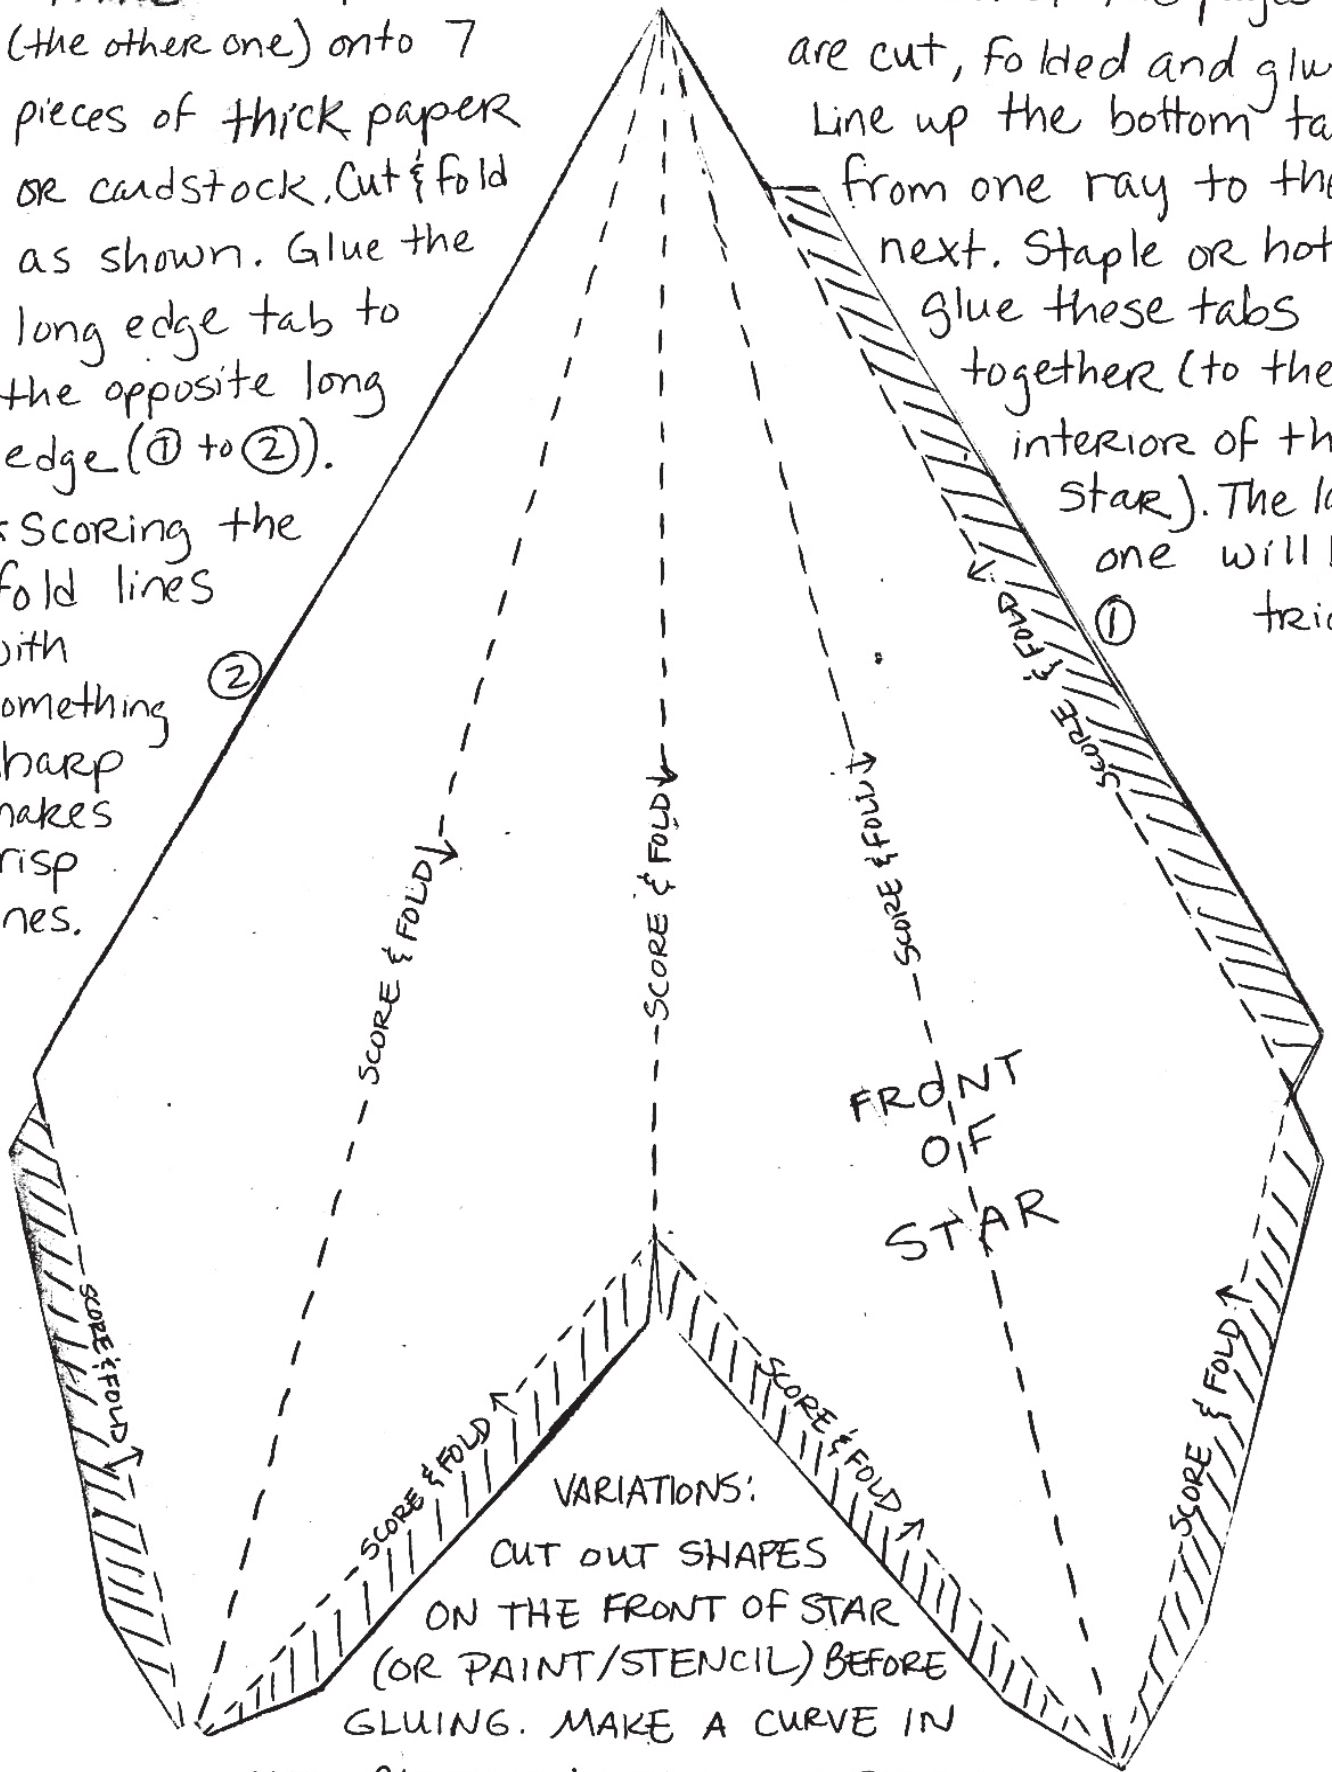 (the other one) onto 7
pieces of thick paper
or cardstock. Cut & fold
as shown. Glue the
long edge tab to
the opposite long
edge (① to ②)).
Scoring the
fold lines
with
omething
harp
makes
risp
nes.
pages
are cut, folded and glu
Line up the bottom ta
from one ray to the
next. Staple or hot
glue these tabs
together (to the
interior of th
star). The la
one will b
tric
②
①
SCORE & FOLD
SCORE & FOLD
SCORE & FOLD
SCORE & FOLD
FRONT
OF
STAR
SCORE & FOLD
SCORE & FOLD
SCORE & FOLD
SCORE & FOLD
VARIATIONS:
CUT OUT SHAPES
ON THE FRONT OF STAR
(OR PAINT/STENCIL) BEFORE
GLUING. MAKE A CURVE IN